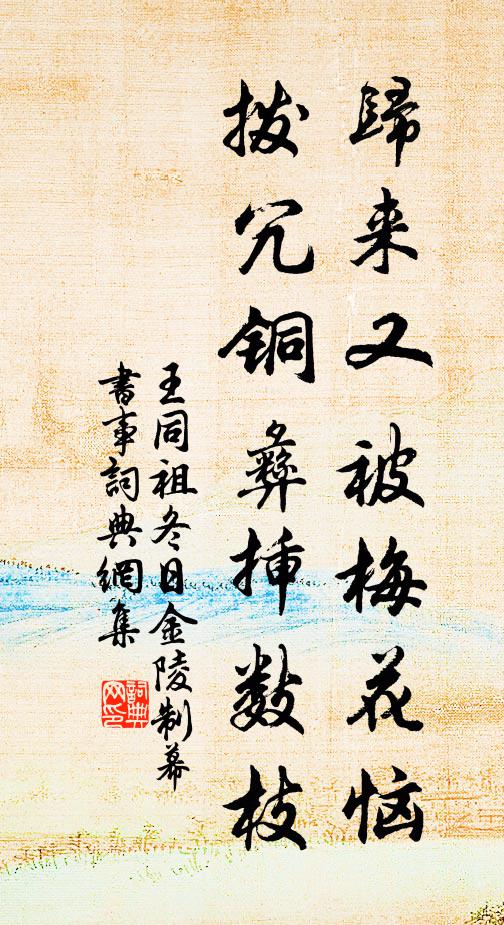 歸来又被梅花恼
拨冗铜彝插数枝
王同祖冬日金陵制幕
書事詞典網集
詞典网印